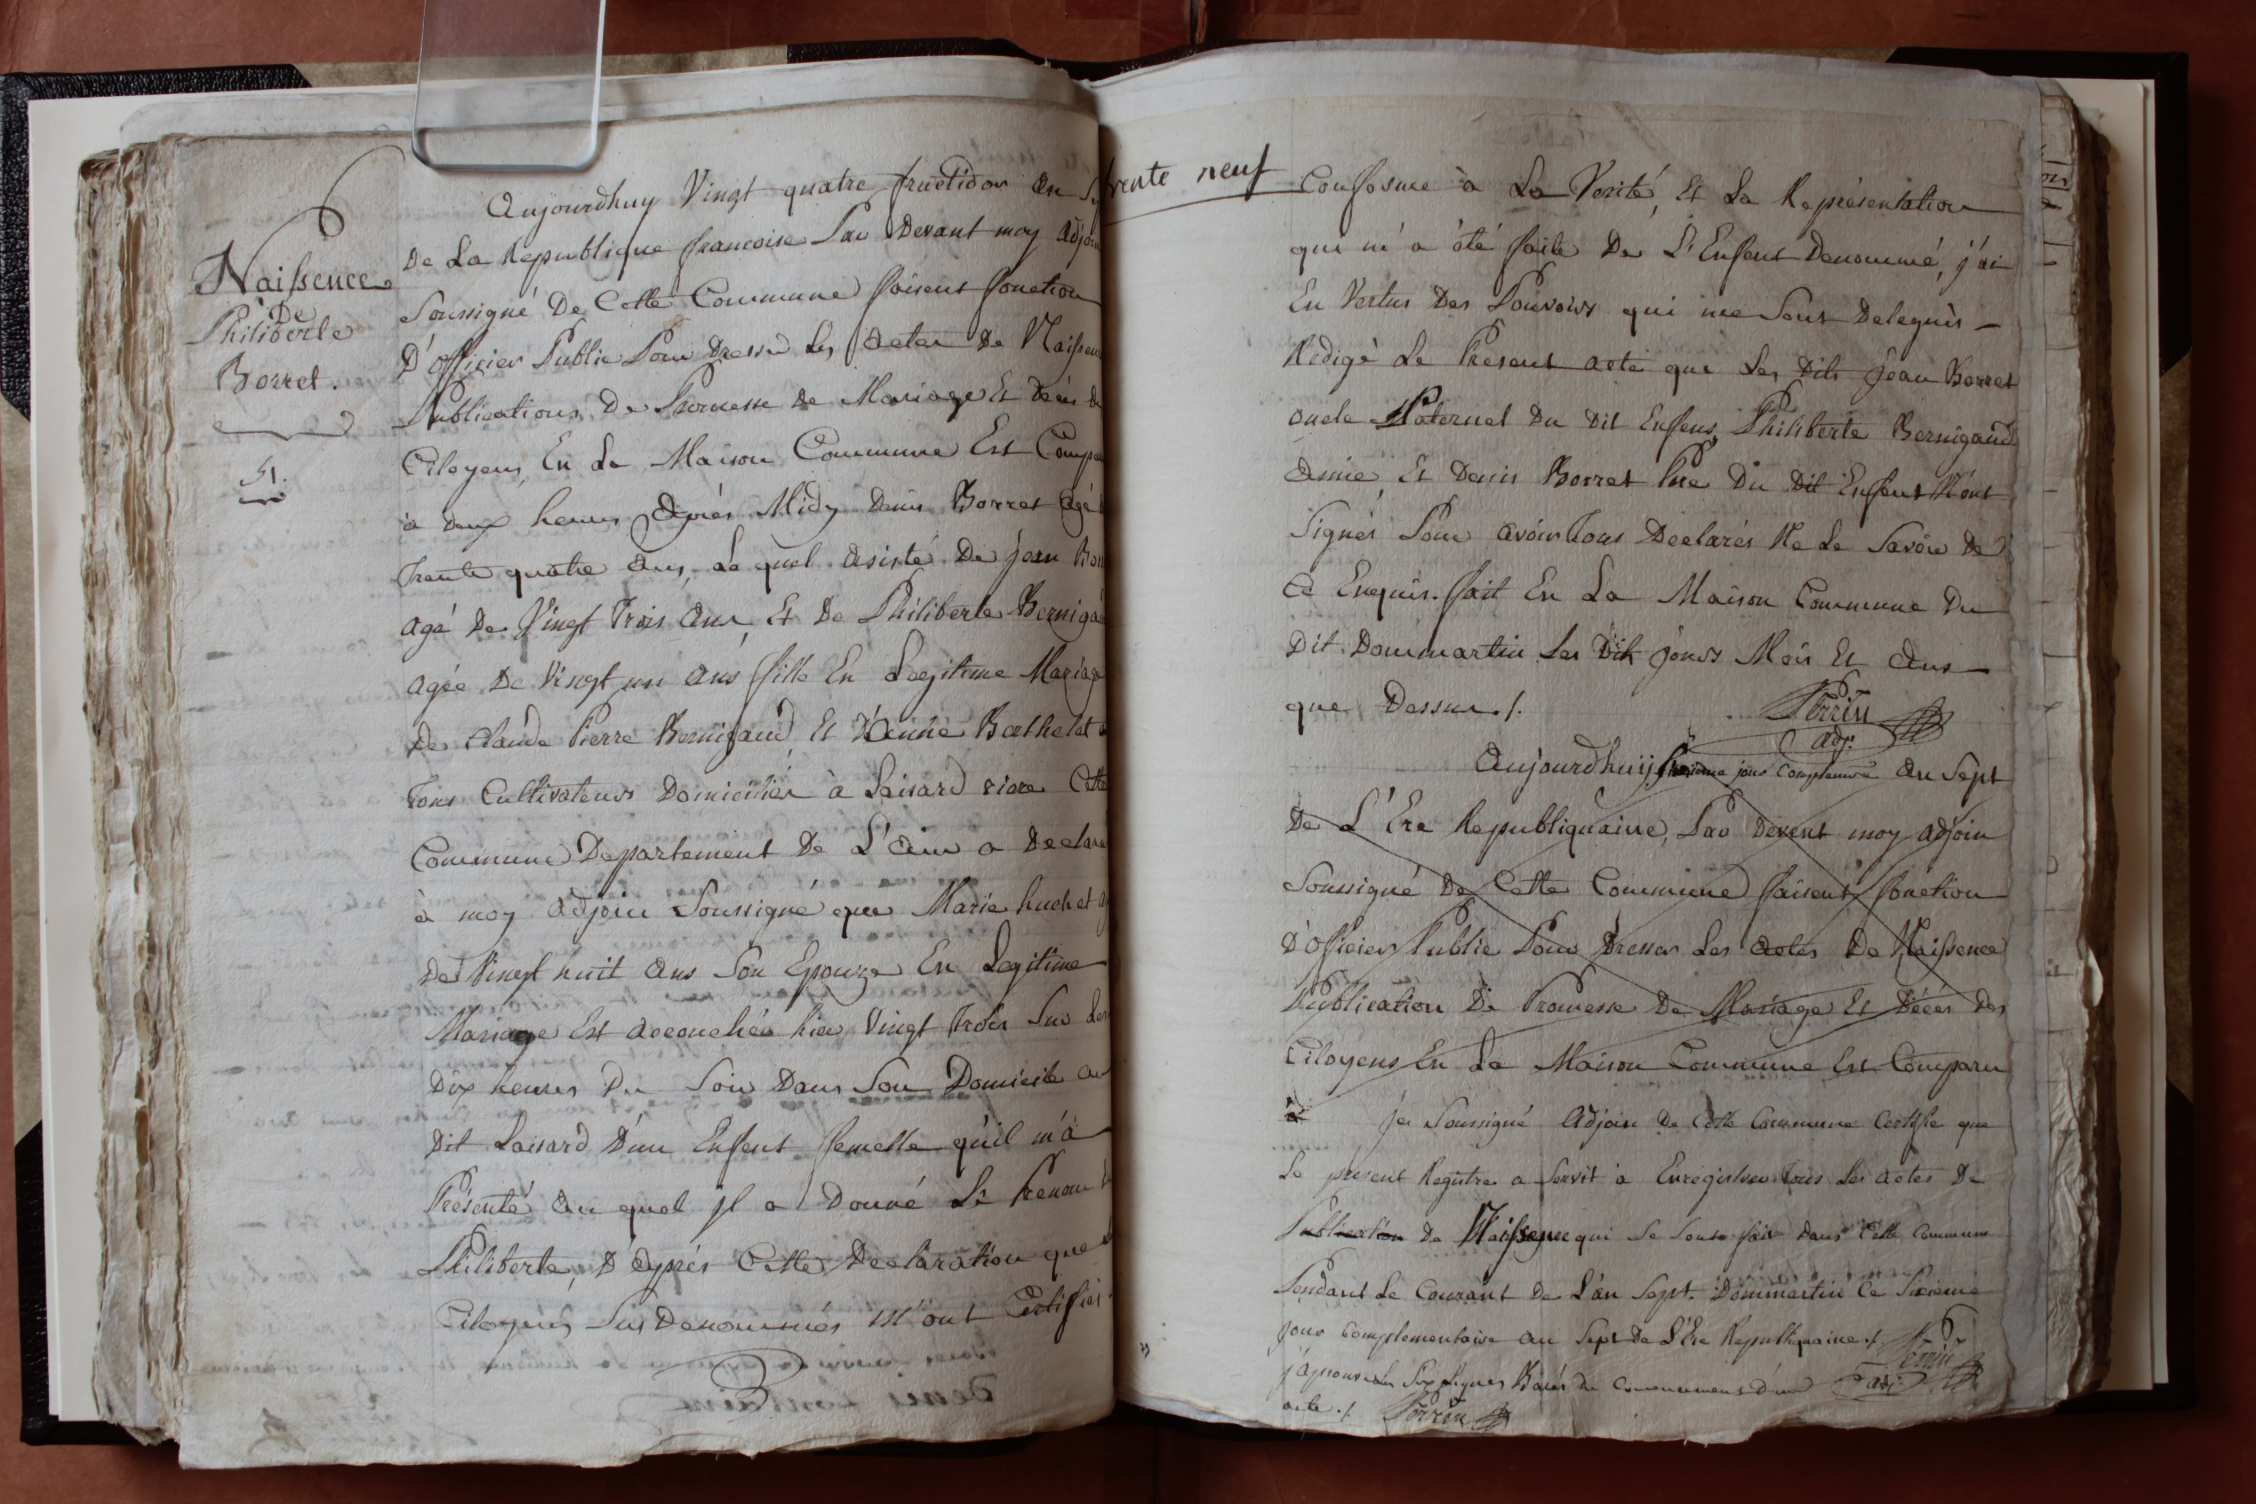 Naissence
De
Philiberte
Borret.
51.
Aujourdhuy Vingt quatre fructidor an
De La Republique francoise Par Devant moy adjoin
Soussigné De Cette Commune faisent fonction
D'officier Public Pour Dresser Les actes De Naissen
Publications De Promesse De Mariage Et Décès de
Citoyens, En La Maison Commune Est Compar
à Deux heures Après Midy Denis Borret agé
Trente quatre ans, Le quel asisté De Jean Bor
agé De Vingt Trois ans, Et De Philiberte Bernigau
agée De Vingt un ans fille En Legitime Mariage
De Claude Pierre Bernigaud Et D'Anne Berthelet
Tous Cultivateurs Domiciliér à Loisard Cette
Commune Departement De L'ain a Declaré
à moy adjoin Soussigné que Marie huchet
De Vingt huit ans Son Epouze En Legitime
Mariage Est accouchéé hier Vingt Trois Sur Les
Dix heures Du Soir Dans Son Domicile au
Dit Loisard D'un Enfent femelle qu'il m'a
Présenté au quel jl a Donné Le Prenom
Philiberte, D'après Cette Declaration que
Citoyens Sus Denommés M'ont Certifiér
trente neuf
Conforme à La Verité, Et La Représentation
qui m'a été faite De L'Enfent Denommé, j'ai
En Vertus Des Pouvoirs qui me Sont Delegués
Redigé Le Present acte que Les Dits Jean Borret
oncle Paternel Du Dit Enfens, Philiberte Bernigaud
amie Et Denis Borret Pere Du Dit Enfent N'ont
Signés Pour avoir Tous Declarés Ne Le Savoir De
Ce Enquis. fait En La Maison Commune Du
Dit Dommartin Les Dit jours Mois Et Ans
que Dessus./.
Perrin
adj.
Aujourdhuij jour Complemre an Sept
De L'Ere Republiquaine, Par Devent moy adjoin
Soussigné De Cette Commune faisent fonction
D'officier Public Pour Dresser Les actes De Naissence
Publication De Promesse De Mariage Et Décés Des
Citoyens En La Maison Commune Est Comparu
à
je Soussigné Adjoin De Cette Commune Certifie que
Le present Registre a Servit à Enregistrer Tous Les actes De
Publication De Naissence qui Se Sont fait Dans Cette Commune
Pendant Le Courant De L'an Sept. Dommartin Ce Sixieme
jour Complementaire an Sept De L'Ere Republiquaine./.
Perrin
adj.
j'aprouve Les Six Lignes Barés Du Commencement D'un
acte./. Perrin